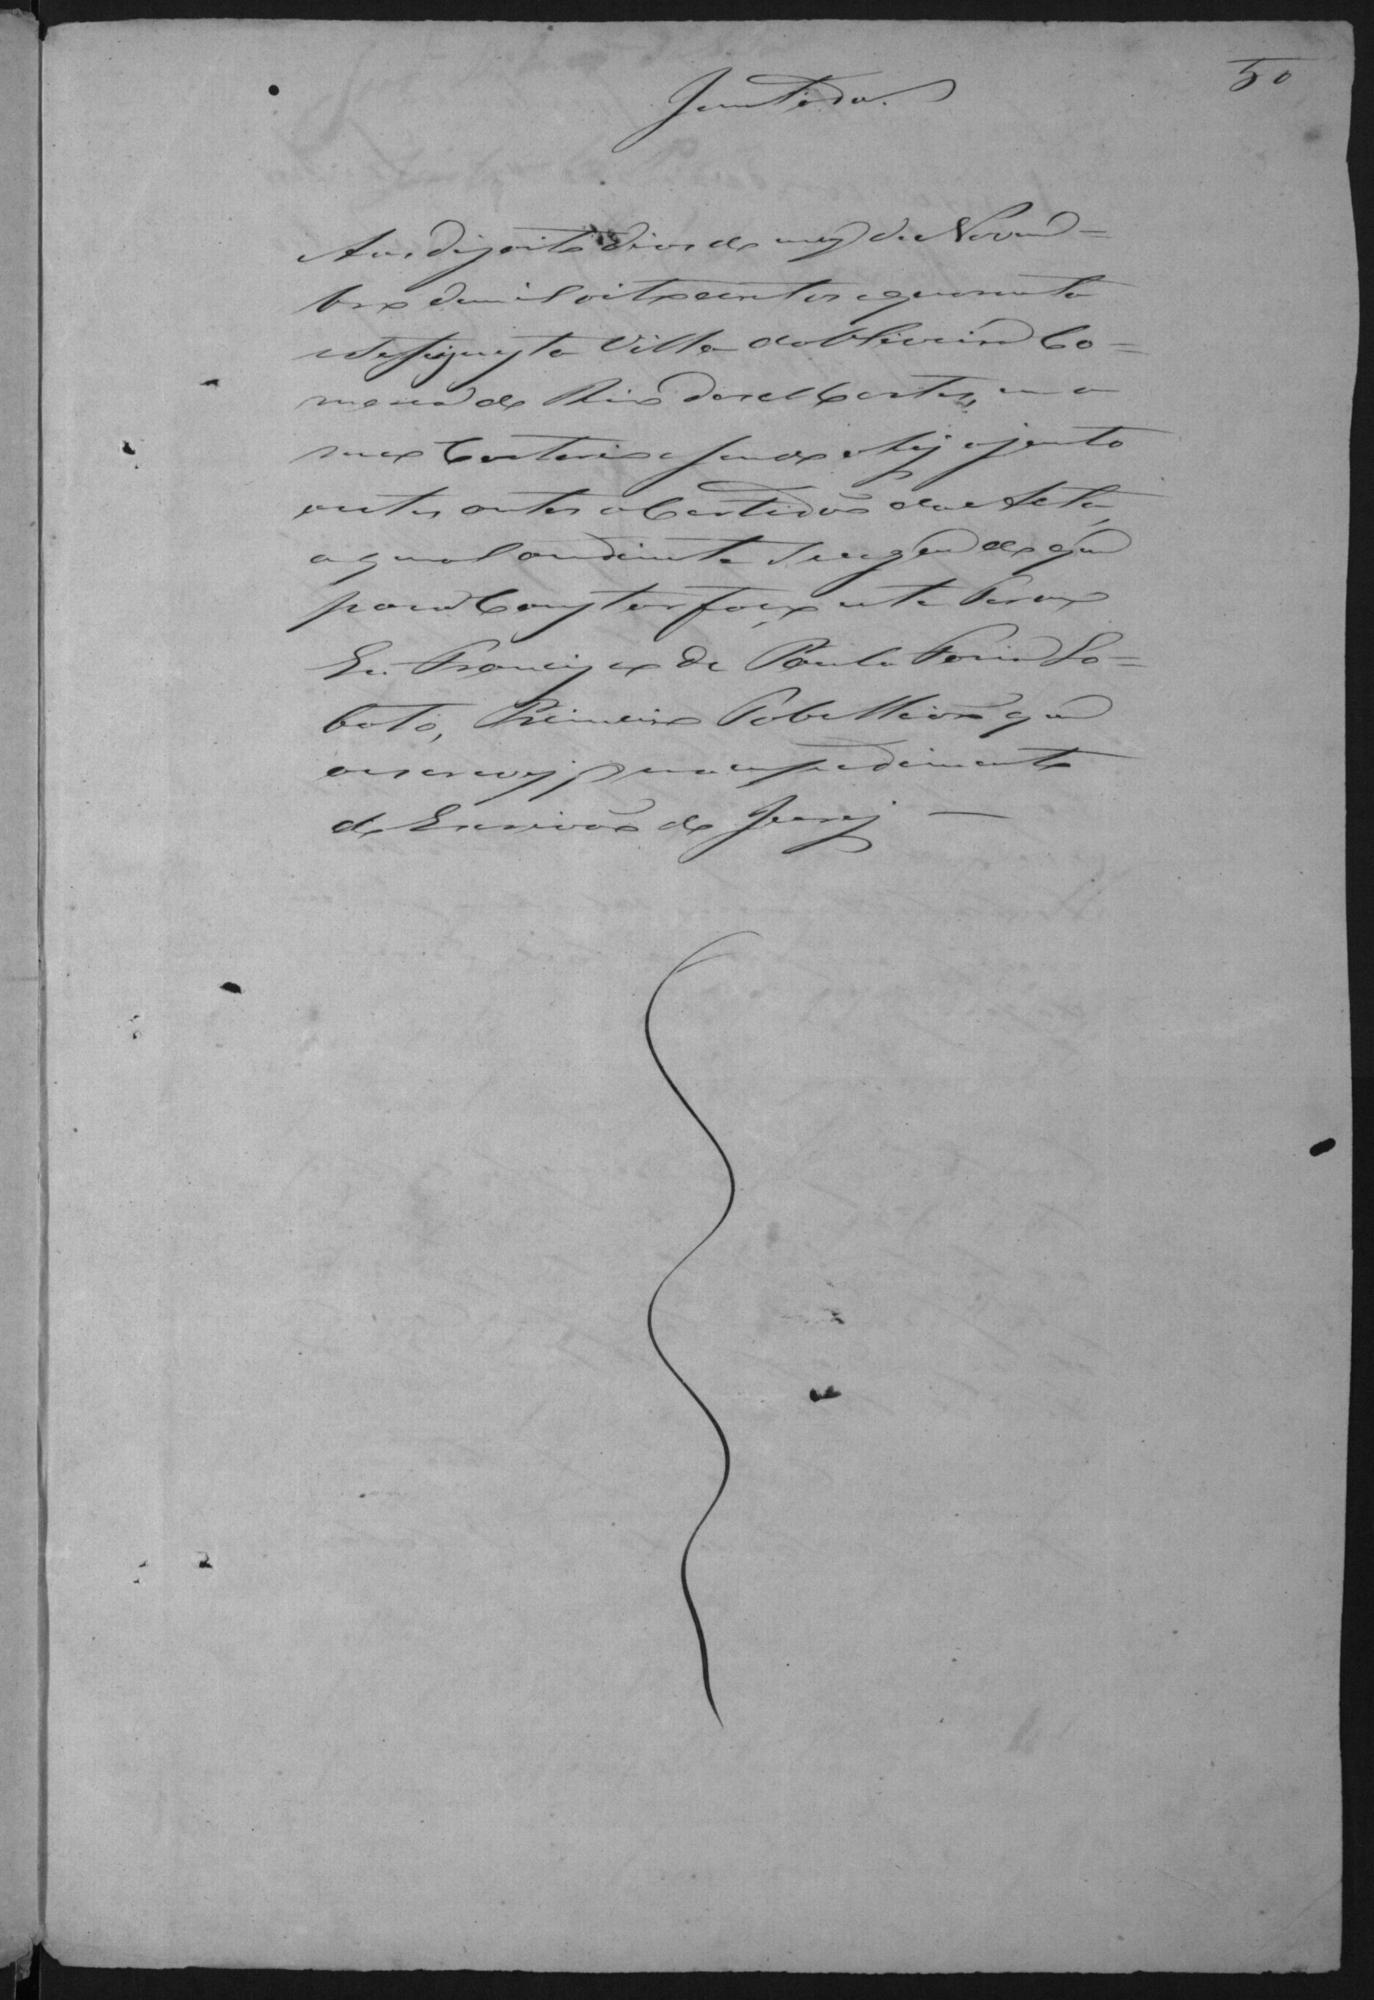 50
Juntada.
Aos dizoito dias do mez de Novem=
bro de mil oito centos e quarenta
e seis, nesta Villa da Oliveira Co=
marca do Rio das Mortes, em o
meu Cartorio sendo ahy ajunto
estes autos a Certidaõ da Acta,
a qual ao diante se segue de que
para Constar faço este Termo
Eu Francisco de Paula Faria Lo=
bato, Primeiro Tabelliaõ que
o escrevy, impedimento
do Escrivaõ do Jury —